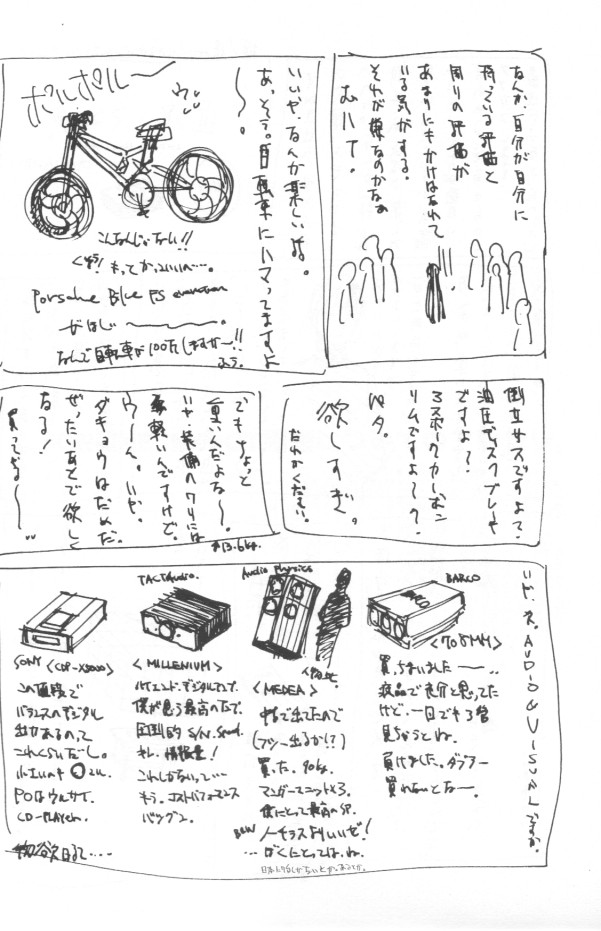 なんか、自分が自分に
持っている評価と
周りの評価が
あまりにもかけはなれて
いる気がする。
それが嫌なのかなぁ
むハて。
いいや、なんか楽しいよ。
あ、そう。自転車にハマってますよ
〜。
ポルポルー〜
こんなんじゃない!!
もっとかっこいい〜…。
Porsche Blue FS evolution
がほしい〜〜。
なんで自転車が100万しますか〜!!
倒立サスですよ?
油圧ディスクブレーキ
ですよ?
3スポークカーボン
リムですよ〜?
ベタ。
欲しすぎ。
だれかください。
でもちょっと
重いんだよな〜。
いや、装備のワリには
軽いんですけど。
ウーん。いや。
ダキョウはだめだ。
ぜったいあとで欲しく
なる!
買ってやる〜〜
13.6kg.
いや、ネ。AUDIO&VISUALですか。
BARCO
<708MM>
買っちまいました〜…。
液晶で充分と思ってた
けど、一回でも3管
見ちゃうとね。
負けました。ダブラー
買わないとなー。
Audio Physics
<MEDEA>
中古で出てたので
(フツー出るか!?)
買った。90kg.
マンガーユニット×3。
僕にとって最高のSP.
B&W ノーチラスよりいいぜ!
…ぼくにとってはね。
TACT Audio.
<MILLENIUM>
ハイエンド・デジタルアンプ。
僕が思う最高の石で。
圧倒的 S/N. Speed.
キレ、情報量!
これしかないって…
もう。コストパフォーマンス
バツグン。
SONY <CDP-X5000>
この値段で
バランスのデジタル
出力あるのって
これくらいだし。
POはウルサイ。
CD-PLAYER.
物欲日記…..